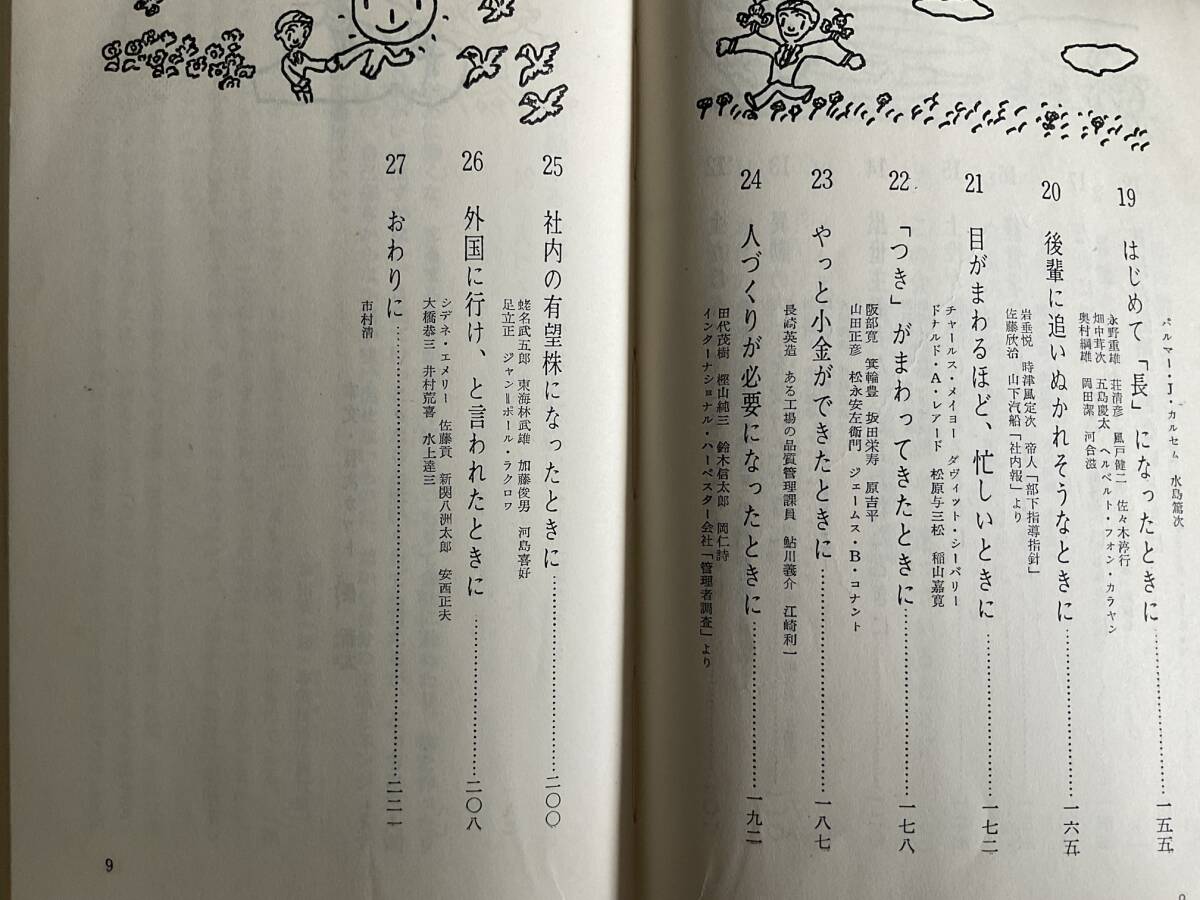 パルマー・J・カルセム 水島篤次
19 はじめて「長」になったときに……一五五
永野重雄 荘清彦 風戸健二 佐々木淳行
畑中茸次 五島慶太 ヘルベルト・フォン・カラヤン
奥村綱雄 岡田潔 河合滋
20 後輩に追いぬかれそうなときに……一六五
岩垂悦 時津風定次 帝人「部下指導指針」
佐藤欣治 山下汽船「社内報」より
21 目がまわるほど、忙しいときに……一七二
チャールス・メイヨー ダヴィット・シーバリー
ドナルド・A・レアード 松原与三松 稲山嘉寛
22 「つき」がまわってきたときに……一七八
阪部寛 箕輪豊 坂田栄寿 原吉平
山田正彦 松永安左衛門 ジェームス・B・コナント
23 やっと小金ができたときに……一八七
長崎英造 ある工場の品質管理課員 鮎川義介 江崎利一
24 人づくりが必要になったときに……一九二
田代茂樹 樫山純三 鈴木信太郎 岡仁詩
インターナショナル・ハーベスター会社「管理者調査」より
25 社内の有望株になったときに……二〇〇
蛯名武五郎 東海林武雄 加藤俊男 河島喜好
足立正 ジャン＝ポール・ラクロワ
26 外国に行け、と言われたときに……二〇八
シデネ・エメリー 佐藤貢 新関八洲太郎 安西正夫
大橋恭三 井村荒喜 水上達三
27 おわりに……二二一
市村清
9